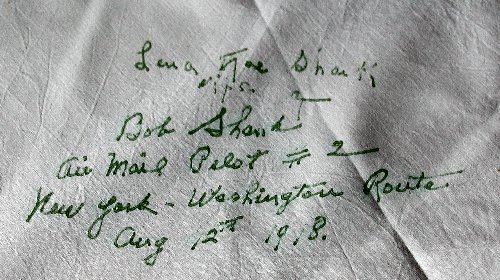 Lena Mae Shank
Mrs.
Bob Shank
Air Mail Pilot # 2
New York - Washington Route
Aug 12th 1918.